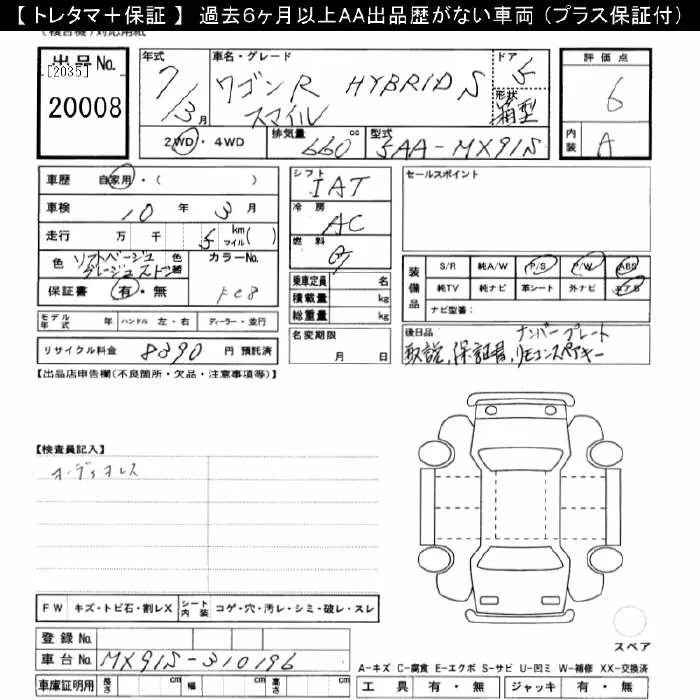 【トレタマ＋保証】 過去6ヶ月以上AA出品歴がない車両（プラス保証付）
出品No.
[2035]
20008
年式 7/3月
車名・グレード ワゴンR HYBRID S
スマイル
ドア 5
形状 箱型
評価点 6
内装 A
2WD・4WD
排気量 660 cc
型式 5AA-MX91S
車歴 自家用・（ ）
車検 10年 3月
走行 万 千 5 km マイル( )
色 ソフトベージュ
グレージュ2トーン
色替
カラーNo.
保証書 有・無
モデル年式 年 ハンドル 左・右 ディーラー・並行
リサイクル料金 8390 円預託済
シフト IAT
冷房 AC
燃料 G
乗車定員 名
積載量 kg
総重量 kg
名変期限 月 日
セールスポイント
装備品 S/R 純A/W P/S P/W ABS
純TV 純ナビ 革シート 外ナビ エアB
ナビ型番：
後日品 ナンバープレート
取説、保証書、リモコンスペアキー
【出品店申告欄(不良箇所・欠品・注意事項等)】
【検査員記入】
オーディオレス
FW キズ・トビ石・割レX シート内装 コゲ・穴・汚レ・シミ・破レ・スレ
登録No.
車台No. MX91S-310196
車庫証明用 長さ cm 幅 cm 高さ cm
スペア
A-キズ C-腐食 E-エクボ S-サビ U-凹ミ W-補修 XX-交換済
工具 有・無 ジャッキ 有・無